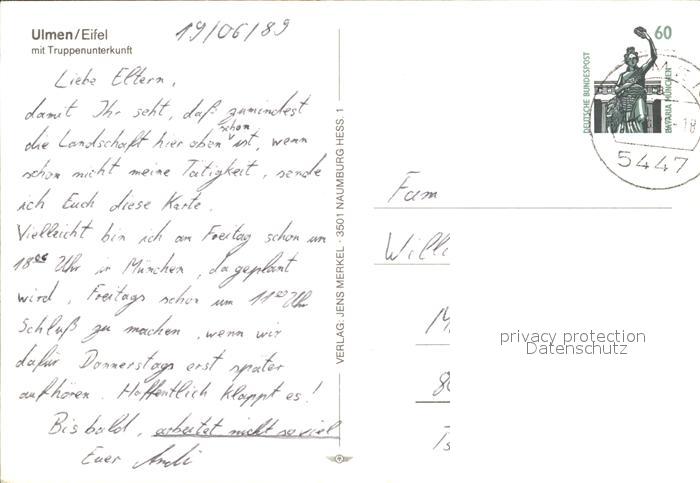 Ulmen/Eifel
mit Truppenunterkunft
19/06/89
Liebe Eltern,
damit Ihr seht, daß zumindest
die Landschaft hier oben schön ist, wenn
schon nicht meine Tätigkeit, sende
ich Euch diese Karte.
Vielleicht bin ich am Freitag schon um
18⁰⁰ Uhr in München, da geplant
wird, Freitags schon um 11⁰⁰ Uhr
Schluß zu machen, wenn wir
dafür Donnerstags erst später
aufhören. Hoffentlich klappt es!
Bis bald, arbeitet nicht so viel
Euer Andi
VERLAG: JENS MERKEL · 3501 NAUMBURG HESS. 1
DEUTSCHE BUNDESPOST
60
BAVARIA MÜNCHEN
-18
5447
Fam
Willi
privacy protection
Datenschutz